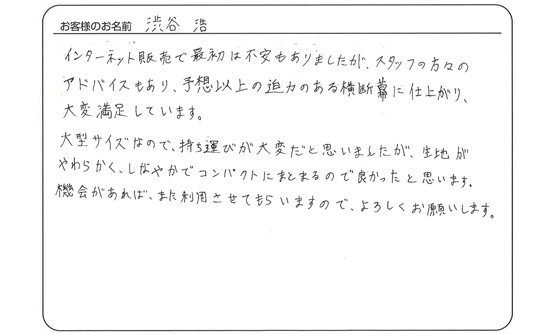 お客様のお名前 渋谷 浩
インターネット販売で最初は不安もありましたが、スタッフの方々の
アドバイスもあり、予想以上の迫力のある横断幕に仕上がり、
大変満足しています。
大型サイズなので、持ち運びが大変だと思いましたが、生地が
やわらかく、しなやかでコンパクトにまとまるので良かったと思います。
機会があれば、また利用させてもらいますので、よろしくお願いします。